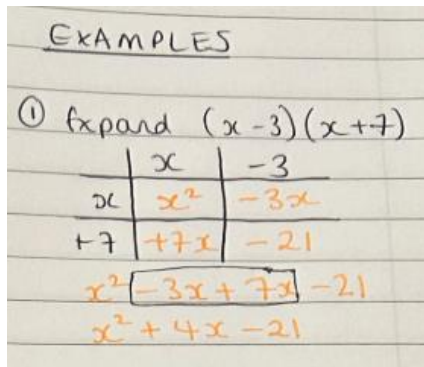 EXAMPLES
① Expand (x-3)(x+7)
x -3
x x² -3x
+7 +7x -21
x² -3x + 7x -21
x² + 4x -21